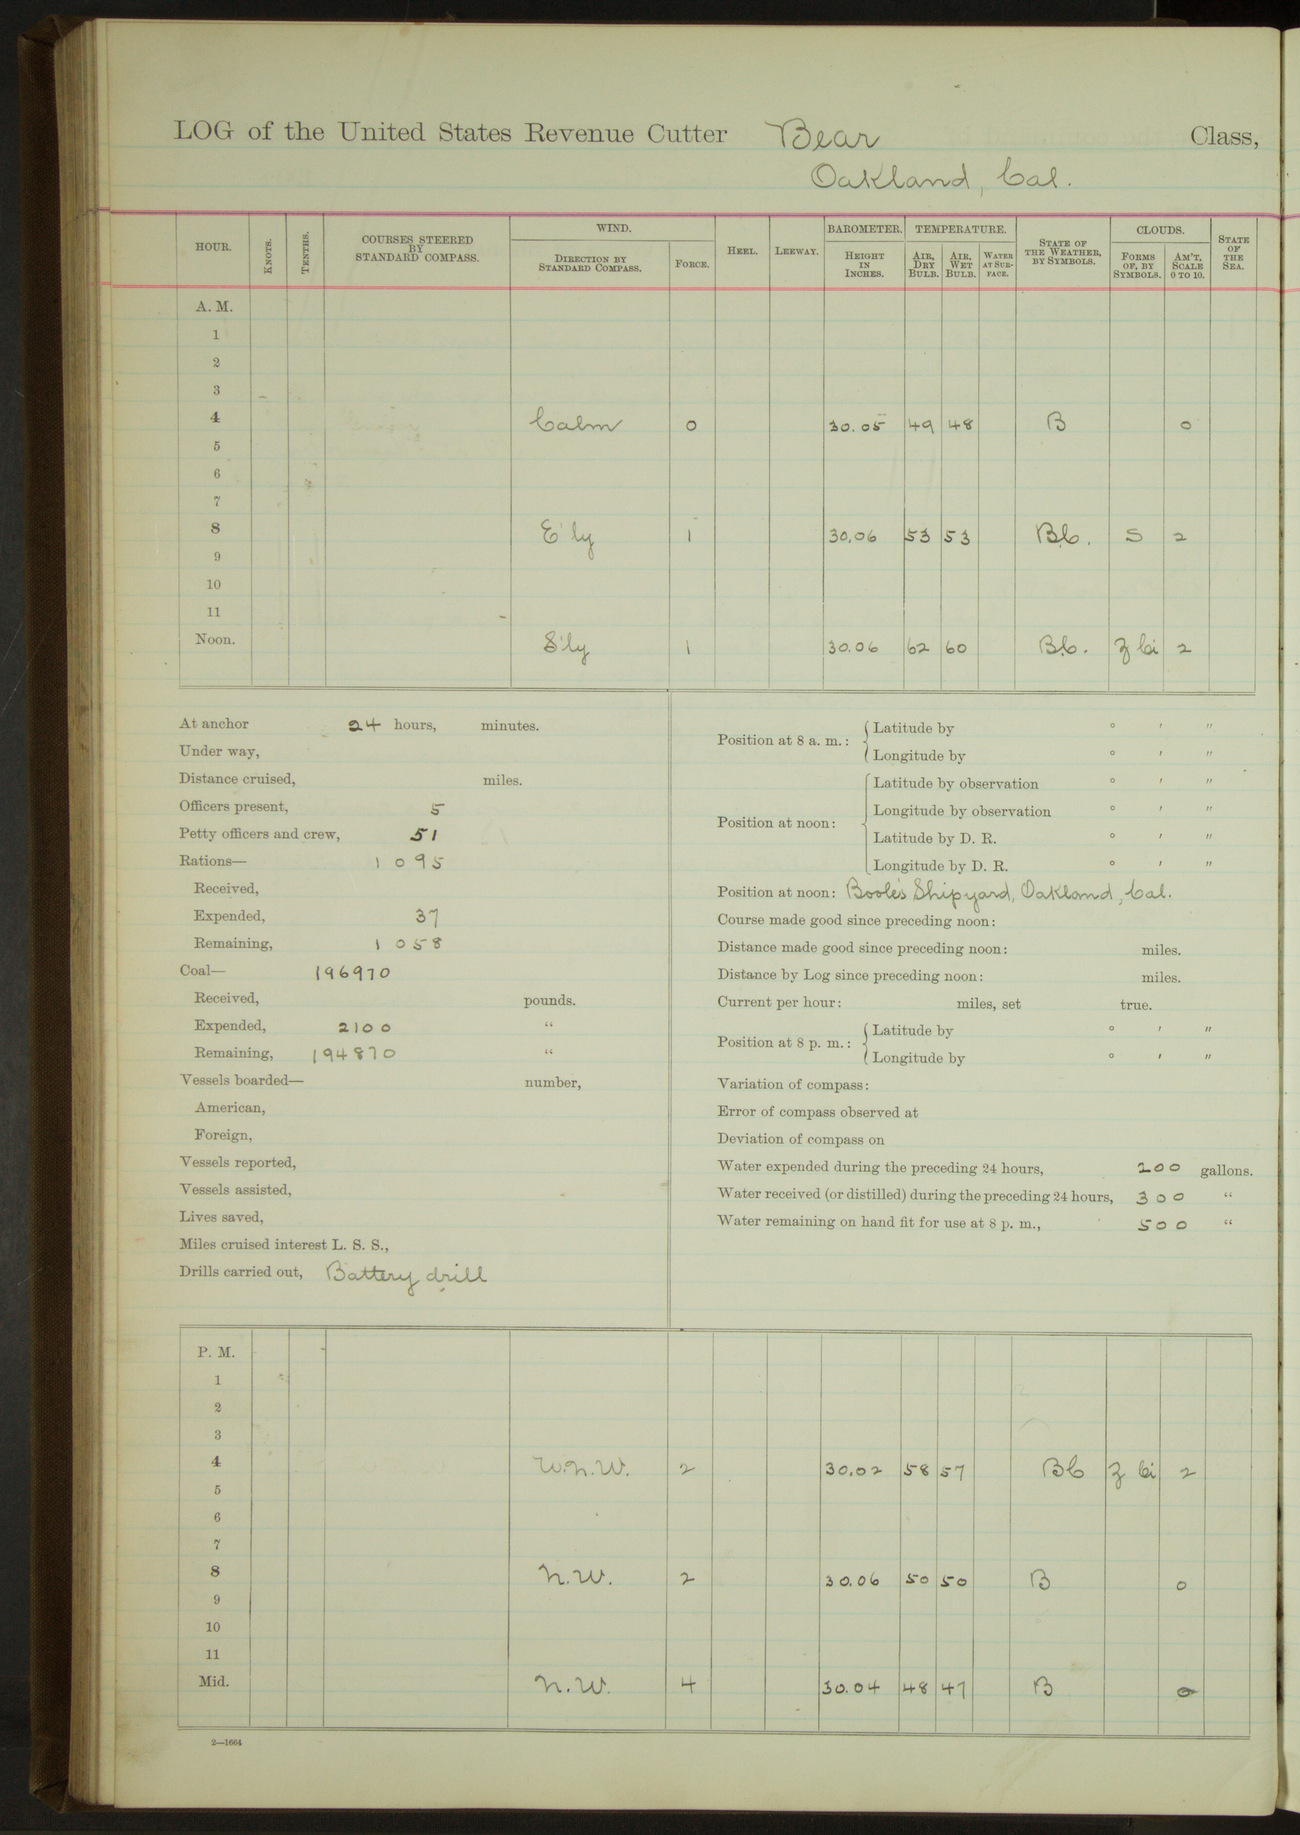 LOG of the United States Revenue Cutter Bear Class,
Oakland, Cal.
HOUR. KNOTS. TENTHS. COURSES STEERED BY STANDARD COMPASS. WIND. DIRECTION BY STANDARD COMPASS. FORCE. HEEL. LEEWAY. BAROMETER. HEIGHT IN INCHES. TEMPERATURE. AIR, DRY BULB. AIR, WET BULB. WATER AT SURFACE. STATE OF THE WEATHER, BY SYMBOLS. CLOUDS. FORMS OF, BY SYMBOLS. AM'T, SCALE 0 TO 10. STATE OF THE SEA.
A. M.
1
2
3
4 Calm 0 30.05 49 48 B 0
5
6
7
8 E'ly 1 30.06 53 53 Bc. S 2
9
10
11
Noon. S'ly 1 30.06 62 60 Bc. Z Ci 2
At anchor 24 hours, minutes.
Under way,
Distance cruised, miles.
Officers present, 5
Petty officers and crew, 51
Rations— 1095
Received,
Expended, 37
Remaining, 1058
Coal— 196970
Received, pounds.
Expended, 2100 "
Remaining, 194870 "
Vessels boarded— number,
American,
Foreign,
Vessels reported,
Vessels assisted,
Lives saved,
Miles cruised interest L. S. S.,
Drills carried out, Battery drill
Position at 8 a. m.: Latitude by ° ′ ″
Longitude by ° ′ ″
Position at noon: Latitude by observation ° ′ ″
Longitude by observation ° ′ ″
Latitude by D. R. ° ′ ″
Longitude by D. R. ° ′ ″
Position at noon: Boole's Shipyard, Oakland, Cal.
Course made good since preceding noon:
Distance made good since preceding noon: miles.
Distance by Log since preceding noon: miles.
Current per hour: miles, set true.
Position at 8 p. m.: Latitude by ° ′ ″
Longitude by ° ′ ″
Variation of compass:
Error of compass observed at
Deviation of compass on
Water expended during the preceding 24 hours, 200 gallons.
Water received (or distilled) during the preceding 24 hours, 300 "
Water remaining on hand fit for use at 8 p. m., 500 "
P. M.
1
2
3
4 W.N.W. 2 30.02 58 57 Bc Z Ci 2
5
6
7
8 N.W. 2 30.06 50 50 B 0
9
10
11
Mid. N.W. 4 30.04 48 47 B 0
2—1664